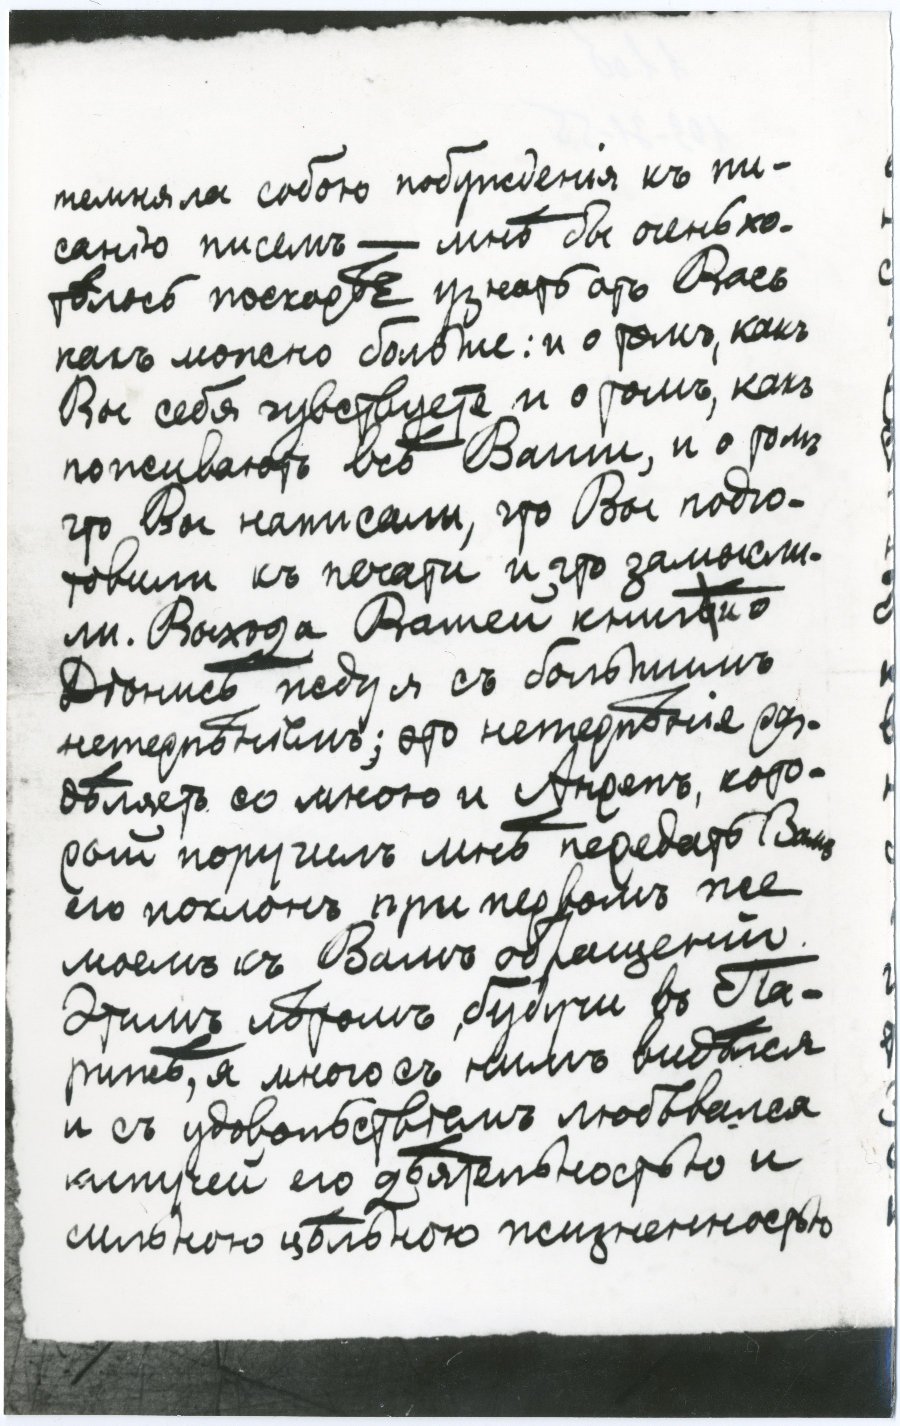 темняла собою побужденія къ пи-
санію писемъ — мнѣ бы очень хо-
тѣлось поскорѣе узнать отъ Васъ
какъ можно больше: и о томъ, какъ
Вы себя чувствуете и о томъ, какъ
поживаютъ всѣ Ваши, и о томъ
что Вы написали, что Вы подго-
товили къ печати и что замысли-
ли. Выхода Вашей книги о
Діонисѣ жду я съ большимъ
нетерпѣніемъ; это нетерпѣніе раз-
дѣляетъ со мною и Андрей, кото-
рый поручилъ мнѣ передать Вамъ
его поклонъ при первомъ же
моемъ къ Вамъ обращеніи.
Этимъ лѣтомъ, будучи въ Па-
рижѣ, я много съ нимъ видѣлся
и съ удовольствіемъ любовался
кипучей его дѣятельностью и
сильною цѣльною жизненностью